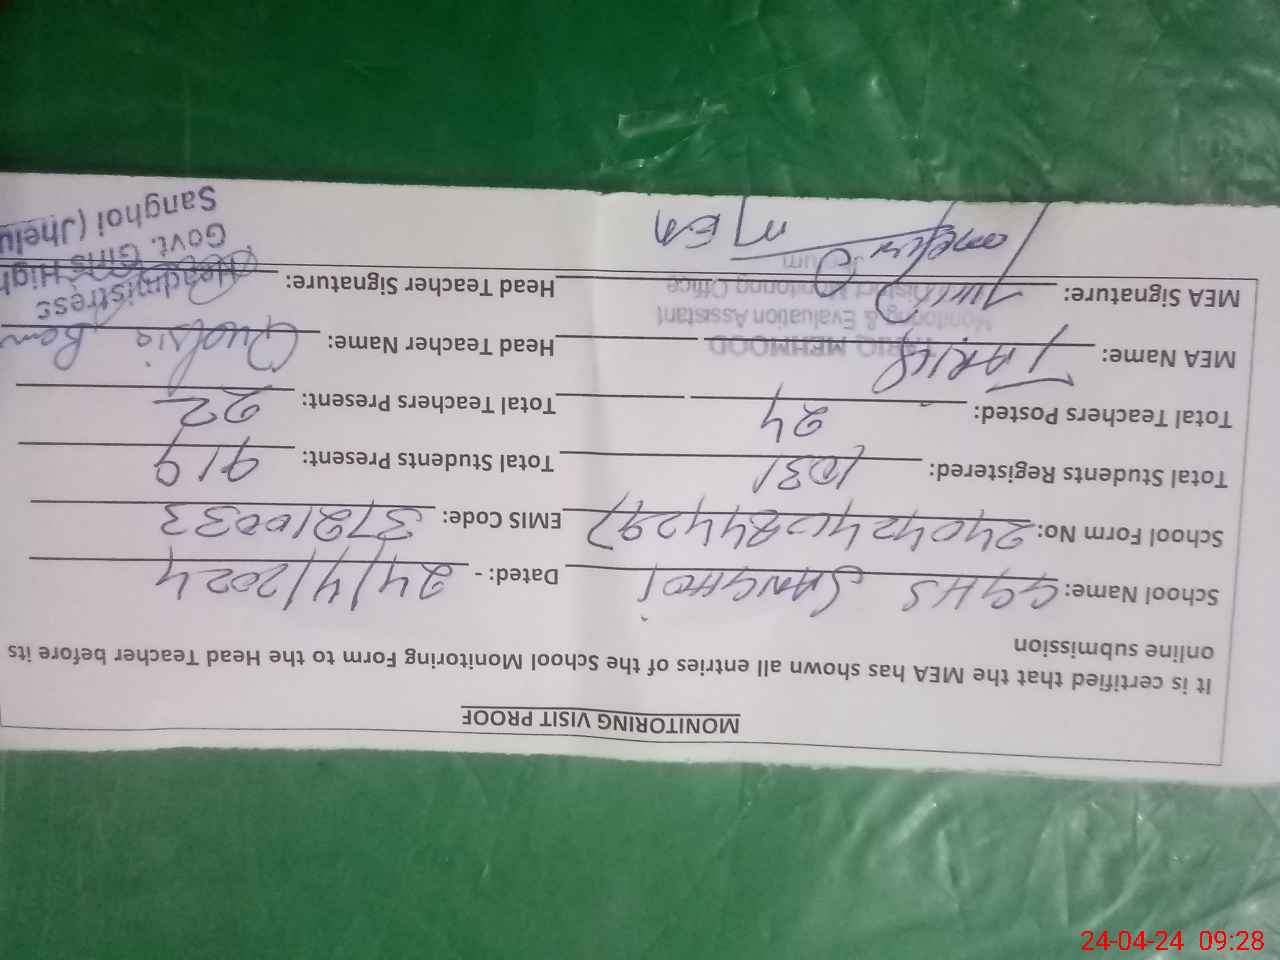 MONITORING VISIT PROOF
It is certified that the MEA has shown all entries of the School Monitoring Form to the Head Teacher before its
online submission
School Name: GGHS SANGHOI Dated: - 24/4/2024
School Form No: EMIS Code: 37210033
Total Students Registered: 1031 Total Students Present: 919
Total Teachers Posted: 24 Total Teachers Present: 22
MEA Name: TARIQ Head Teacher Name: Qudsia
TARIQ MEHMOOD
Monitoring & Evaluation Assistant
District Monitoring Office
MEA Signature: Head Teacher Signature:
MEA
Headmistress
Govt. Girls High
Sanghoi (Jhelu
24-04-24 09:28